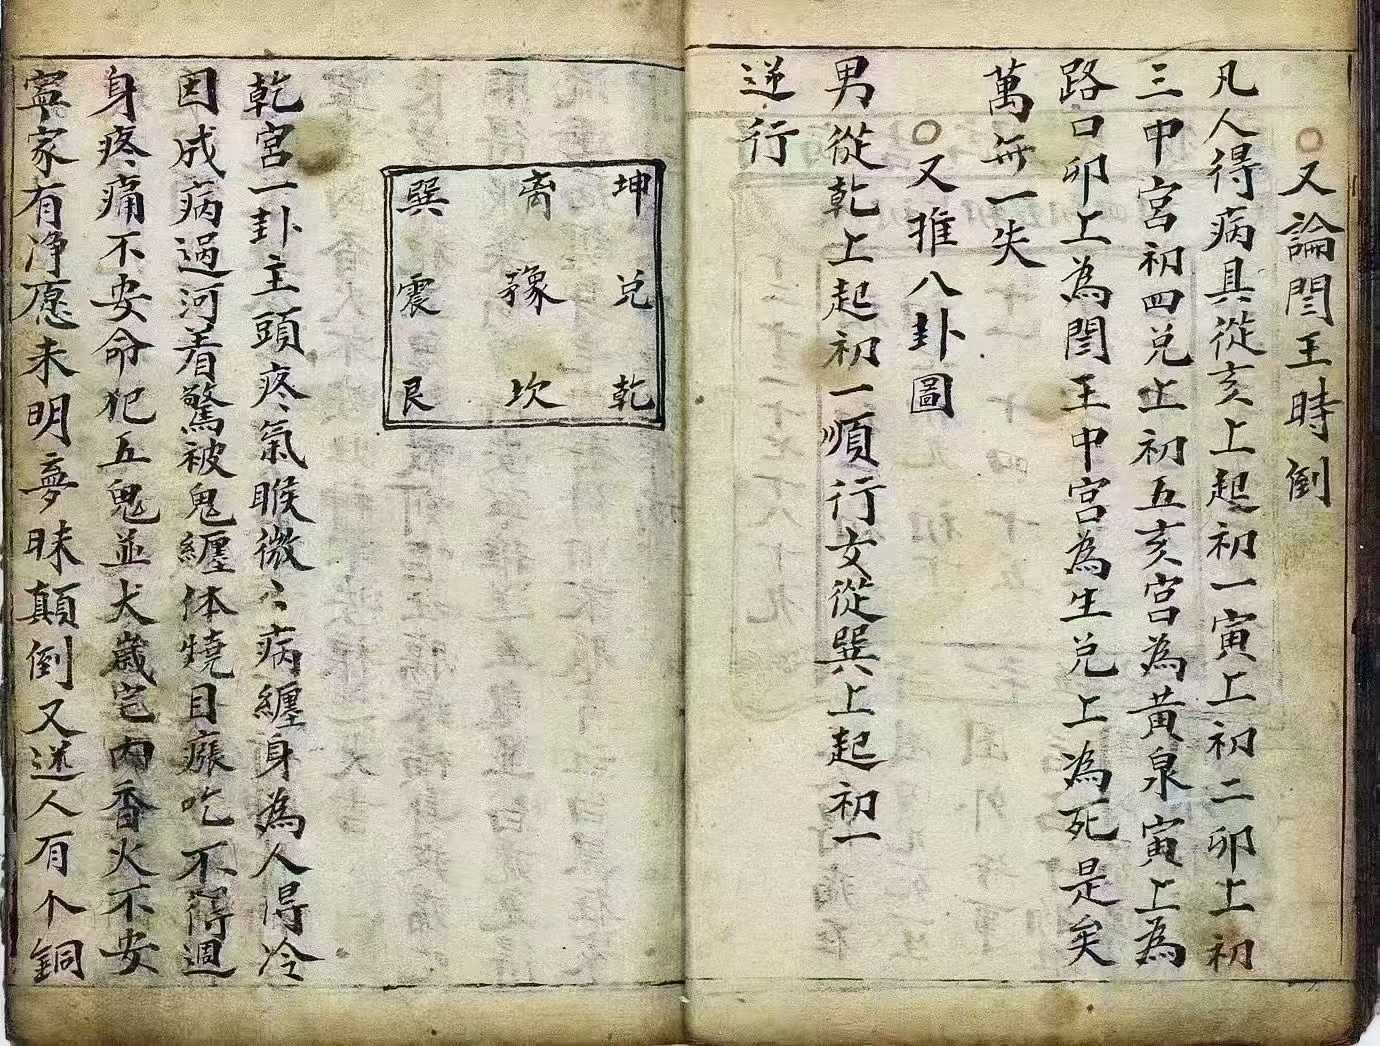 ○又論閆王時倒
凡人得病具從亥上起初一寅上初二卯上初
三中宮初四兑上初五亥宮為黃泉寅上為
路口卯上為閆王中宮為生兑上為死是矣
萬無一失
○又推八卦圖
男從乾上起初一順行女從巽上起初一
逆行
坤 离 巽
兑 豫 震
乾 坎 艮
乾宮一卦主頭疼氣喉微々病纏身為人得冷
因成病過河着驚被鬼纏体燒目瘬吃不得週
身疼痛不安命犯五鬼並犬歲宅內香火不安
寧家有净愿未明夢昧顛倒又送人有个銅